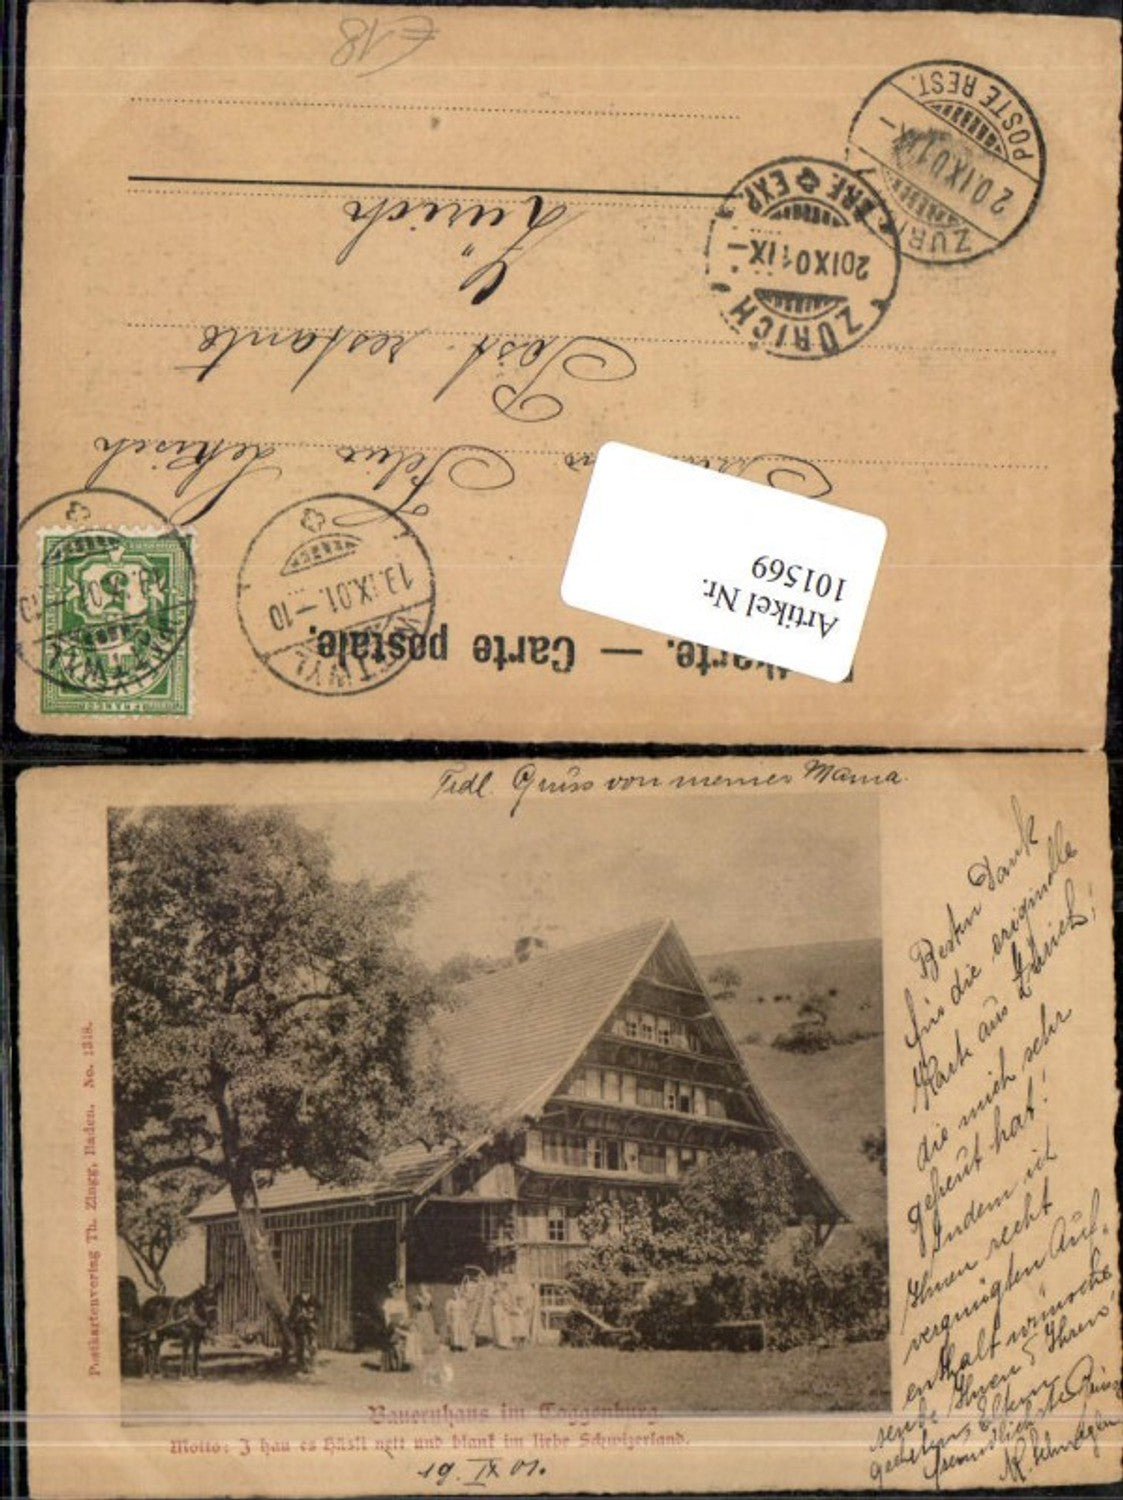 Postkarte. — Carte postale.
Felix Schisch
Post restante
Zürich
£18
Artikel Nr.
101569
WATTWYL
19.IX.01.–10
ZÜRICH
BRF. EXP.
20 IX 01 IX–
ZÜRICH
POSTE REST.
20.IX.01 IX–
FRANCO
Frdl. Gruss von meiner Mama.
Besten Dank
für die originelle
Karte aus Zürich!
die mich sehr
gefreut hat!
Indem ich
Ihnen recht
vergnügten Auf-
enthalt wünsche
sende Ihnen & Ihren
geehrten Eltern
freundlichste Grüsse
Postkartenverlag Th. Zingg, Baden. No. 1318.
Bauernhaus im Toggenburg.
Motto: J hau es Hüsli nett und blank im liebe Schwizerland.